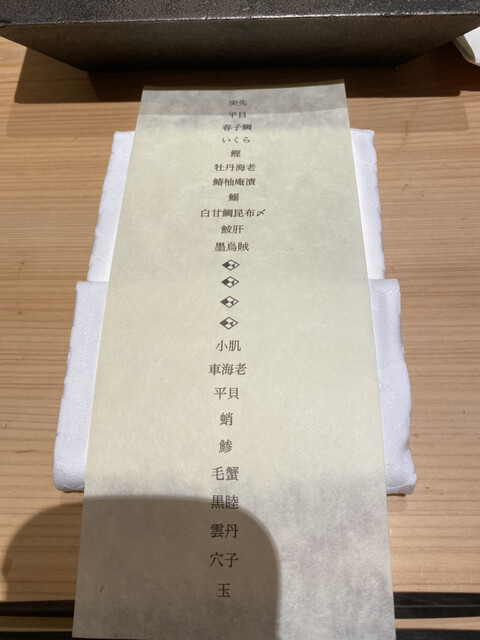 突先
平目
春子鯛
いくら
鰹
牡丹海老
鰆柚庵漬
鰯
白甘鯛昆布〆
鮟肝
墨烏賊
小肌
車海老
平貝
蛸
鯵
毛蟹
黒睦
雲丹
穴子
玉